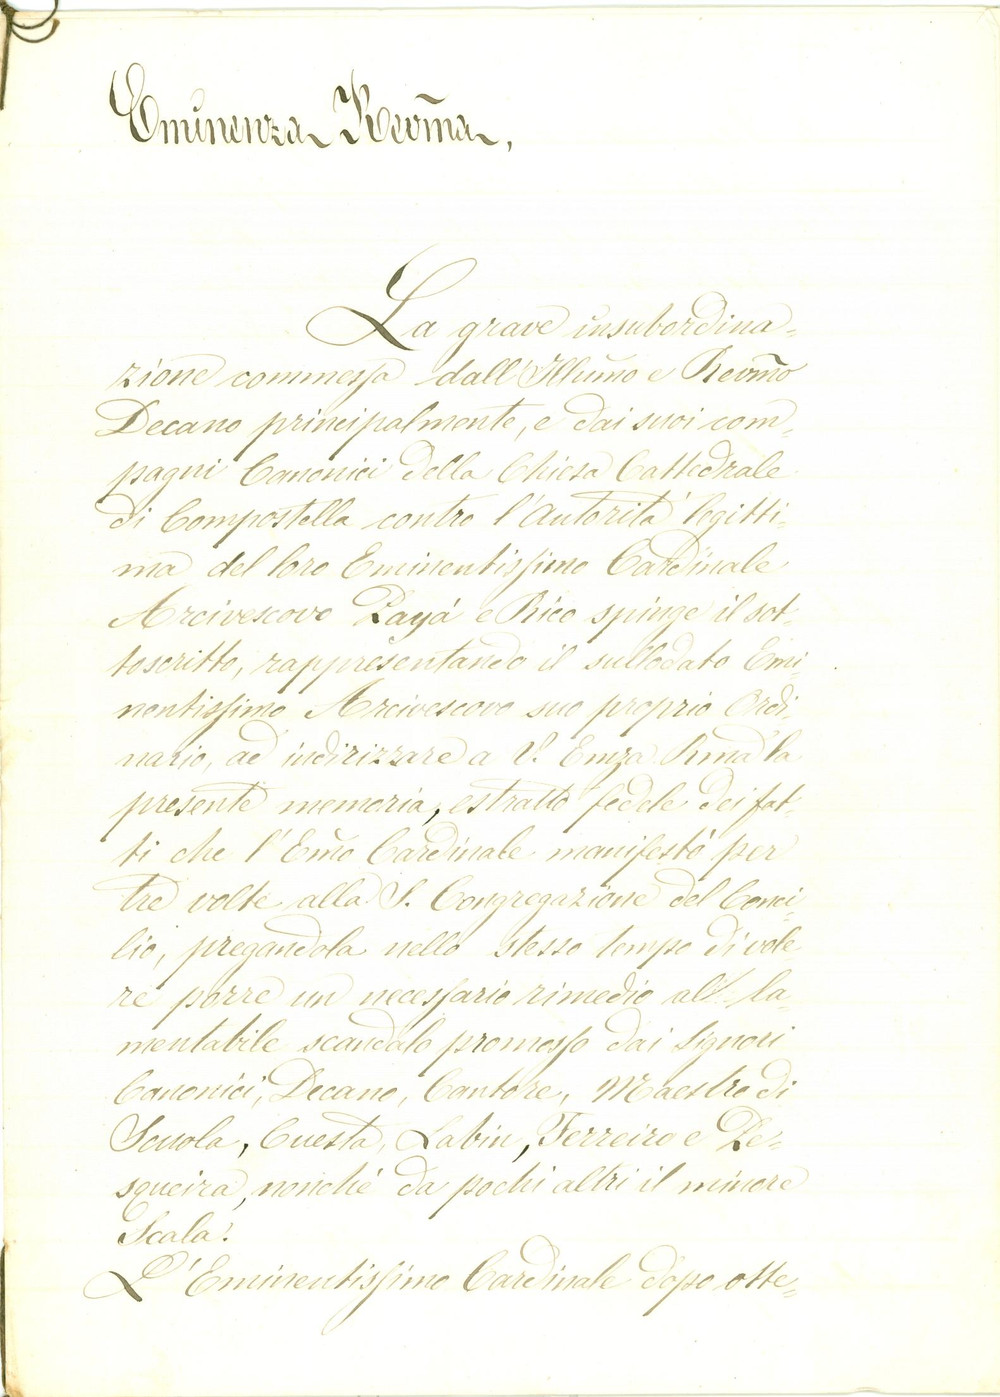 Eminenza Revm̃a,
La grave insubordina=
zione commessa dall'Illum̃o e Revm̃o
Decano principalmente, e dai suoi com=
pagni Canonici della Chiesa Cattedrale
di Compostella contro l'Autorità legitti=
ma del loro Eminentissimo Cardinale
Arcivescovo Payá e Rico spinge il sot=
toscritto, rappresentando il sullodato Emi=
nentissimo Arcivescovo suo proprio Ordi=
nario, ad indirizzare a V. Emza Rma la
presente memoria, estratto fedele dei fat=
ti che l'Em̃o Cardinale manifestò per
tre volte alla S. Congregazione del Conci=
lio, pregandola nello stesso tempo di vole=
re porre un necessario rimedio al la=
mentabile scandalo promosso dai Signori
Canonici, Decano, Cantore, Maestro di
Scuola, Cuesta, Labin, Ferreiro e Pe=
squeira, nonchè da pochi altri il minore
Scala.
L'Eminentissimo Cardinale dopo otte=